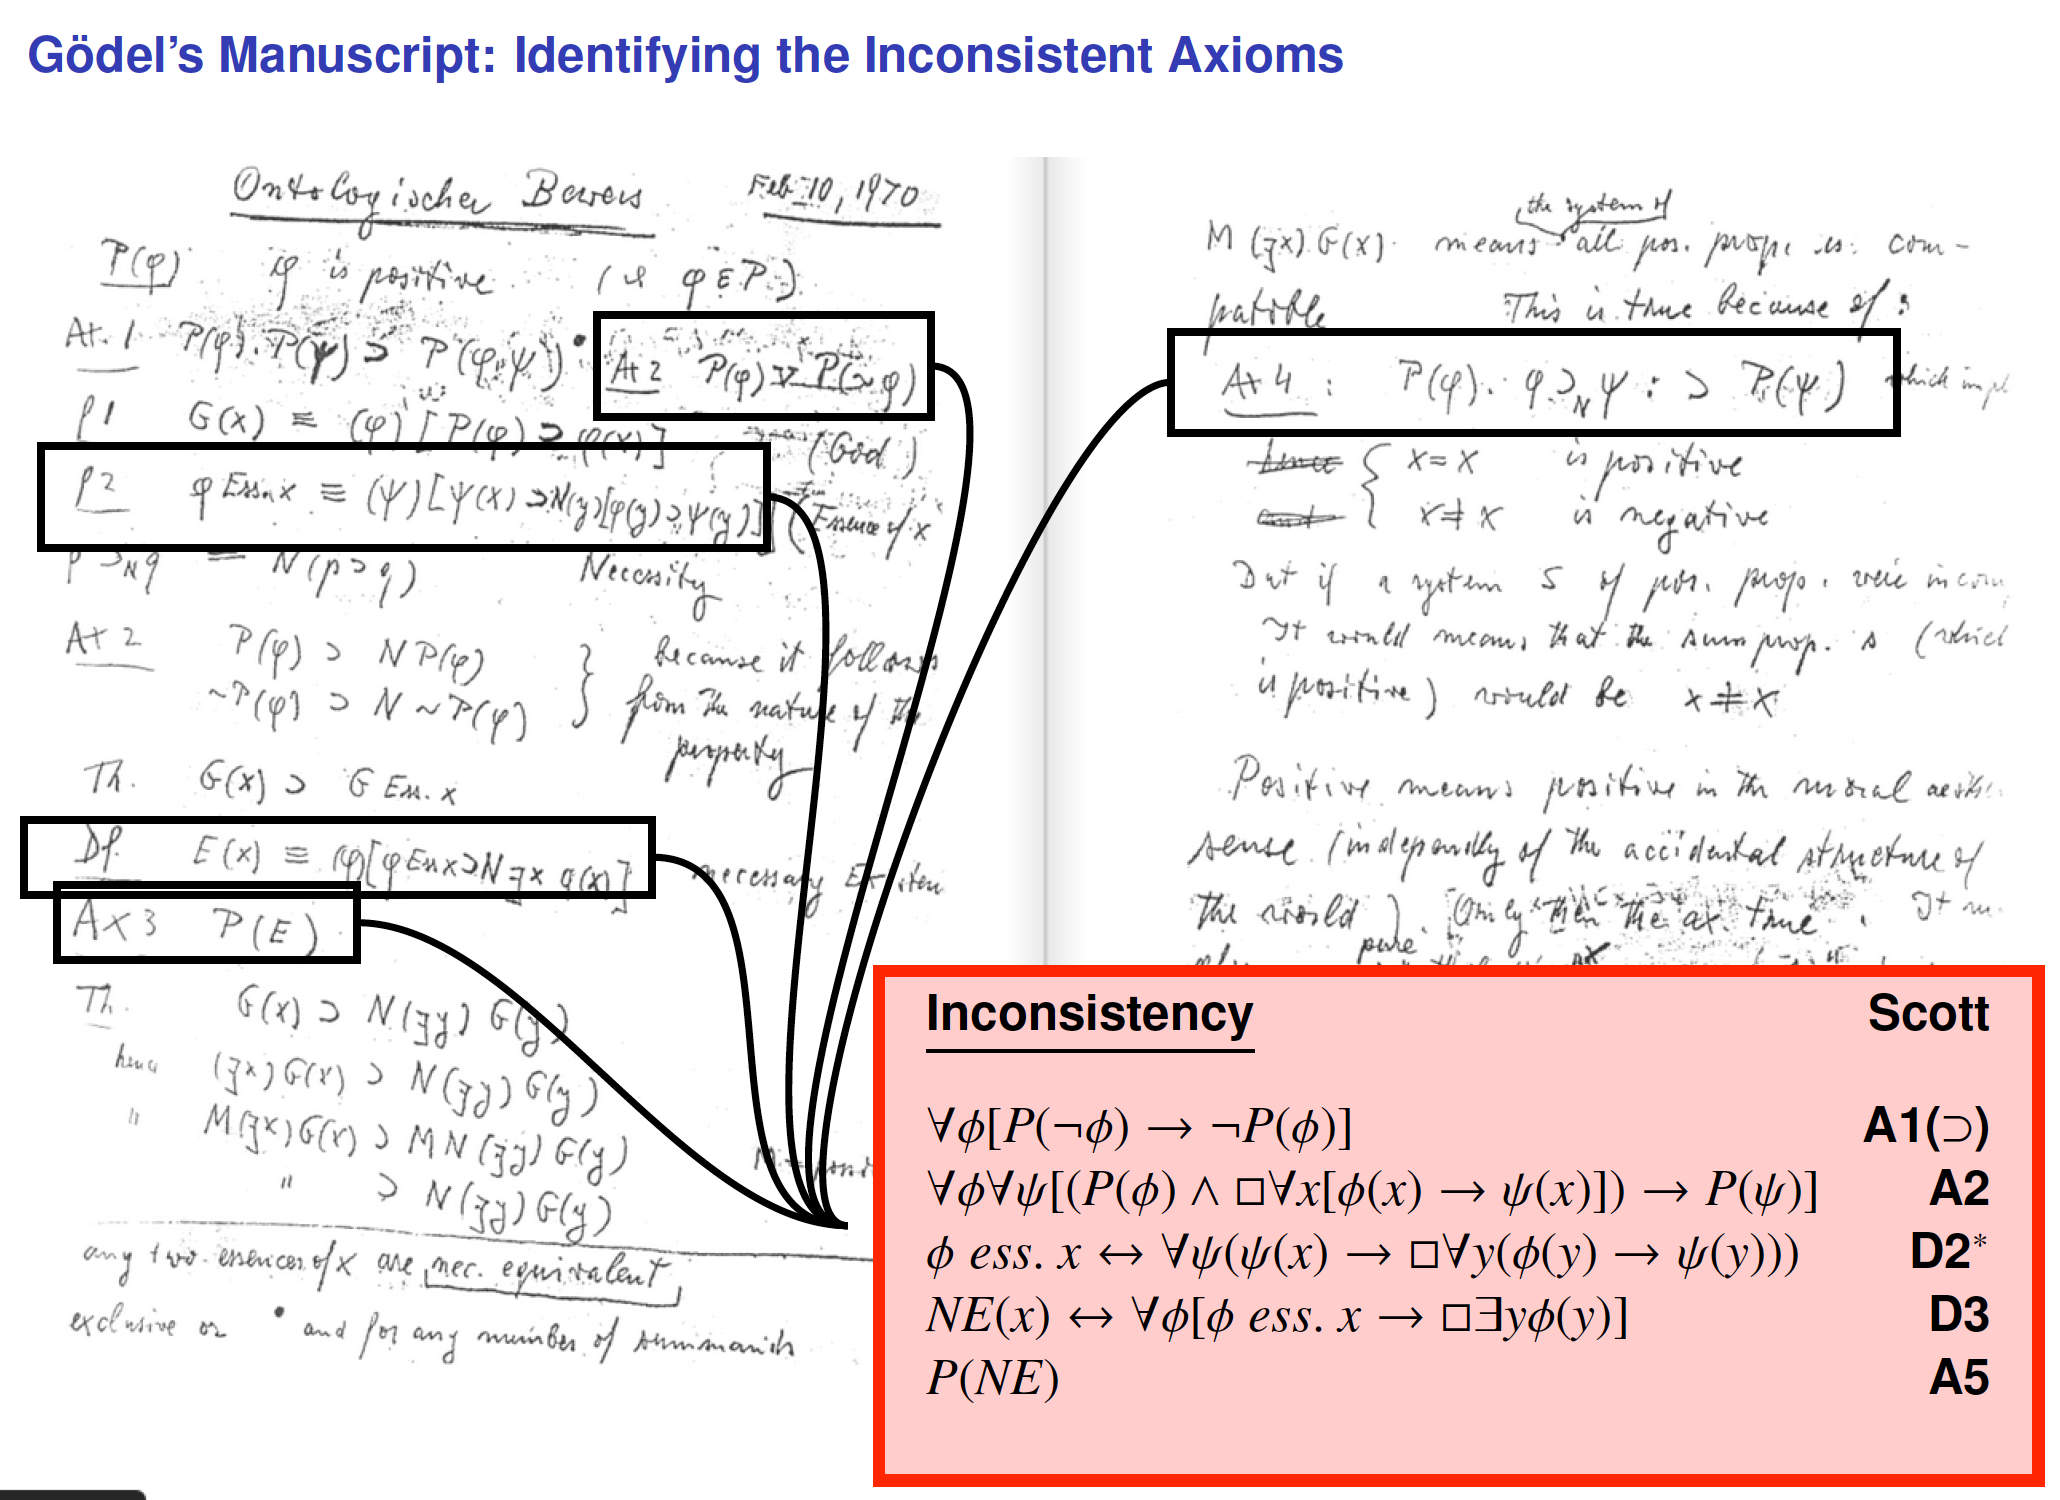 Gödel’s Manuscript: Identifying the Inconsistent Axioms
Ontologischer Beweis Feb 10, 1970
P(φ) φ is positive (φ ε P.)
At. 1 P(φ). P(ψ) ⊃ P(φ.ψ)• At 2 P(φ) ∨ P(~φ)
P1 G(x) ≡ (φ)[P(φ) ⊃ φ(x)] (God)
P2 φ Ess. x ≡ (ψ)[ψ(x) ⊃ N(y)[φ(y) ⊃ ψ(y)]] (Essence of x
p ⊃N q = N(p ⊃ q) Necessity
At 2 P(φ) ⊃ N P(φ) } because it follows
~P(φ) ⊃ N ~P(φ) from the nature of the
property
Th. G(x) ⊃ G Ess. x
Df. E(x) ≡ (φ)[φ Ess x ⊃ N ∃x φ(x)] necessary Existen
Ax 3 P(E)
Th. G(x) ⊃ N(∃y) G(y)
hence (∃x) G(x) ⊃ N(∃y) G(y)
" M(∃x) G(x) ⊃ M N (∃y) G(y)
" ⊃ N(∃y) G(y)
any two essences of x are nec. equivalent
exclusive or • and for any number of summands
the system of
M (∃x) G(x) means all pos. prop. is com-
patible This is true because of:
Ax 4: P(φ). φ ⊃N ψ: ⊃ P(ψ) which impl
hence { x=x is positive
and x≠x is negative
But if a system S of pos. prop. were incom
It would mean that the sum prop. s (which
is positive) would be x≠x
Positive means positive in the moral aesthe
sense (independly of the accidental structure of
the world). Only then the ax. true. It m
pure
Inconsistency Scott
∀ϕ[P(¬ϕ) → ¬P(ϕ)] A1(⊃)
∀ϕ∀ψ[(P(ϕ) ∧ □∀x[ϕ(x) → ψ(x)]) → P(ψ)] A2
ϕ ess. x ↔ ∀ψ(ψ(x) → □∀y(ϕ(y) → ψ(y))) D2*
NE(x) ↔ ∀ϕ[ϕ ess. x → □∃yϕ(y)] D3
P(NE) A5